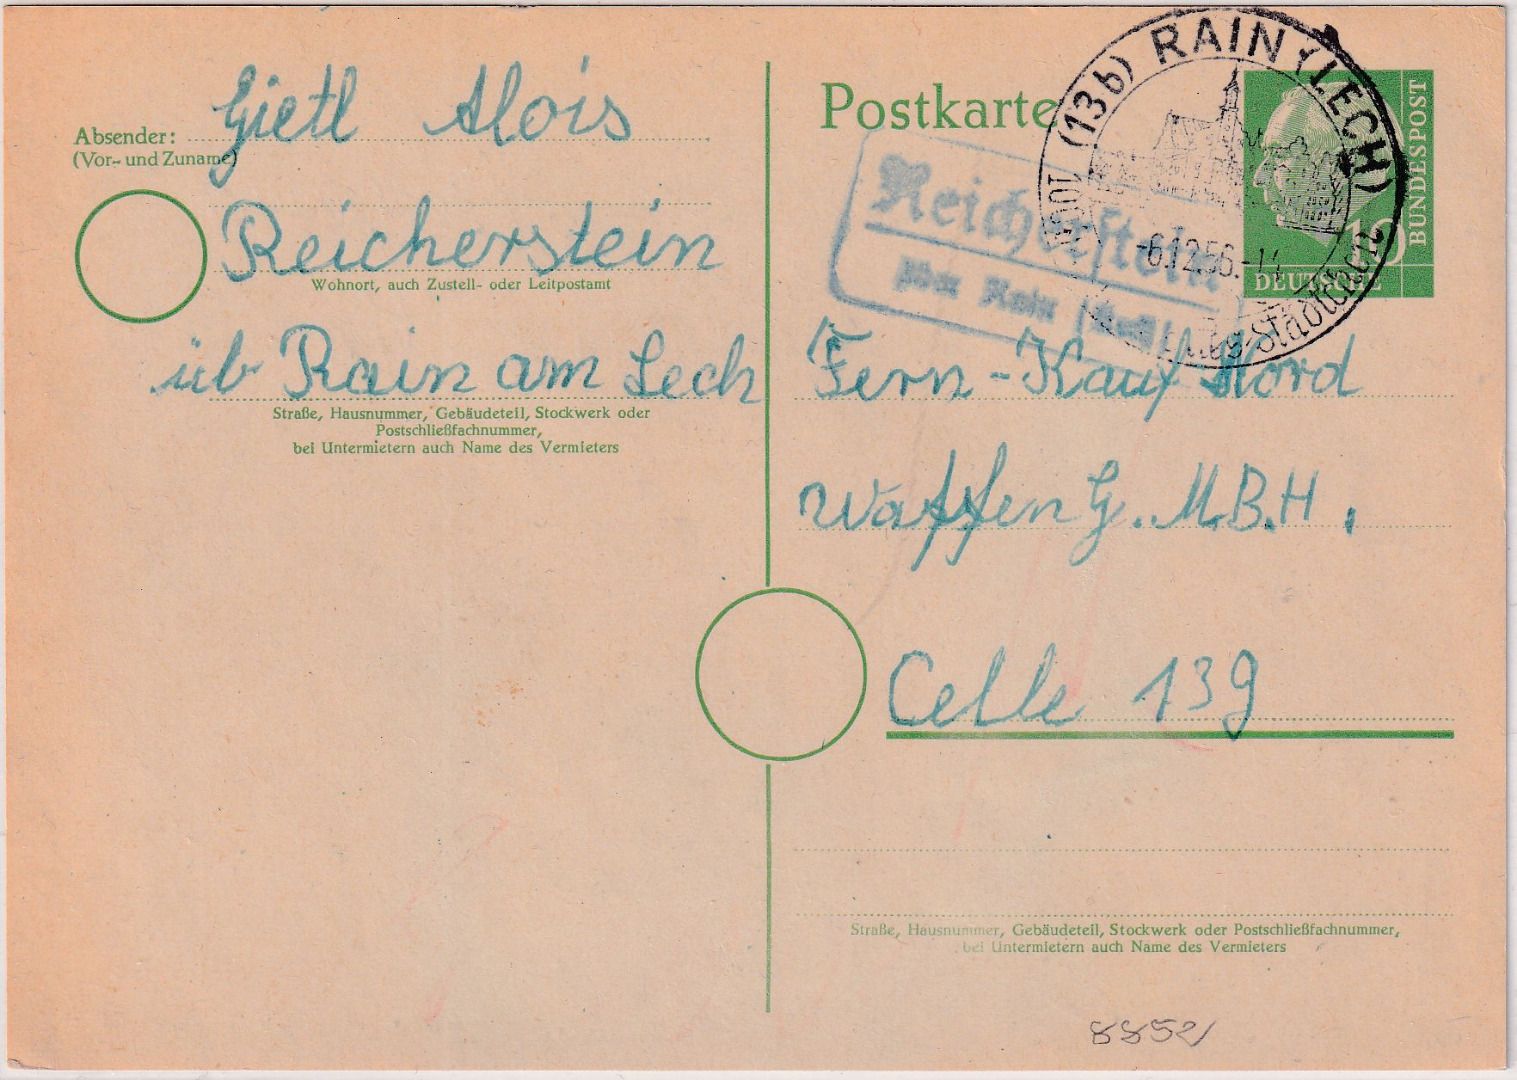 Absender:
(Vor- und Zuname)
Gietl Alois
Reicherstein
Wohnort, auch Zustell- oder Leitpostamt
üb Rain am Lech
Straße, Hausnummer, Gebäudeteil, Stockwerk oder
Postschließfachnummer,
bei Untermietern auch Name des Vermieters
Postkarte
(13b) RAIN (LECH)
-6.12.56.-14
Städtchen
Reicherstein
über Rain (Lech)
10
DEUTSCHE
BUNDESPOST
Fern-Kauf Nord
Waffen G.M.B.H.
Celle 13g
Straße, Hausnummer, Gebäudeteil, Stockwerk oder Postschließfachnummer,
bei Untermietern auch Name des Vermieters
8852